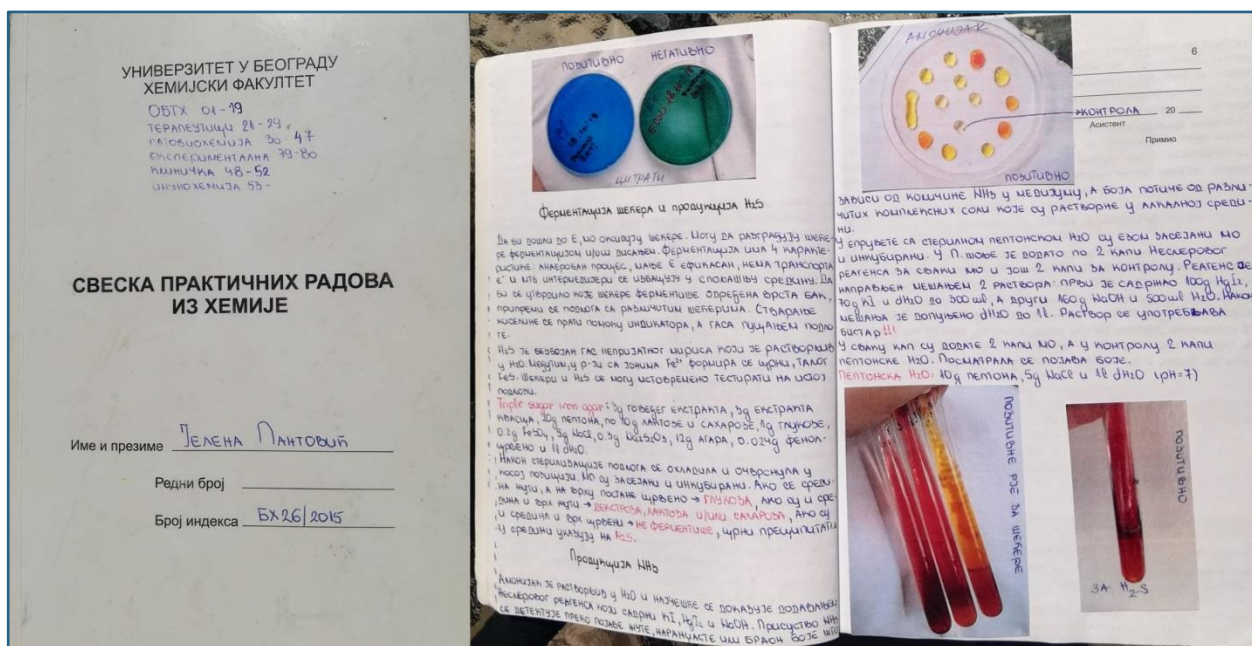 УНИВЕРЗИТЕТ У БЕОГРАДУ
ХЕМИЈСКИ ФАКУЛТЕТ
ОБТХ 01-19
ТЕРАПЕУТИЦИ 21-29
ПАТОБИОХЕМИЈА 30-47
ЕКСПЕРИМЕНТАЛНА 79-80
КЛИНИЧКА 48-52
ИМУНОХЕМИЈА 53-
СВЕСКА ПРАКТИЧНИХ РАДОВА
ИЗ ХЕМИЈЕ
Име и презиме ЈЕЛЕНА ПАНТОВИЋ
Редни број
Број индекса БХ26/2015
ПОЗИТИВНО НЕГАТИВНО
ЦИТРАТИ
ФЕРМЕНТАЦИЈА ШЕЋЕРА И ПРОДУКЦИЈА H2S
ДА БИ ДОШЛИ ДО Е, МО ОКСИДУЈУ ШЕЋЕРЕ. МОГУ ДА РАЗГРАЂУЈУ ШЕЋЕ-
РЕ ФЕРМЕНТАЦИЈОМ И/ИЛИ ДИСАЊЕМ. ФЕРМЕНТАЦИЈА ИМА 4 КАРАКТЕ-
РИСТИКЕ: АНАЕРОБАН ПРОЦЕС, МАЊЕ Е ЕФИКАСАН, НЕМА ТРАНСПОРТА
е⁻ И МТБ ИНТЕРМЕДИЈЕРИ СЕ ИЗБАЦУЈУ У СПОЉАШЊУ СРЕДИНУ. ДА
БИ СЕ УТВРДИЛО КОЈЕ ШЕЋЕРЕ ФЕРМЕНТИШЕ ОДРЕЂЕНА ВРСТА БАК,
ПРИПРЕМИ СЕ ПОДЛОГА СА РАЗЛИЧИТИМ ШЕЋЕРИМА. СТВАРАЊЕ
КИСЕЛИНЕ СЕ ПРАТИ ПОМОЋУ ИНДИКАТОРА, А ГАСА ПУЦАЊЕМ ПОДЛО-
ГЕ.
H2S ЈЕ БЕЗБОЈАН ГАС НЕПРИЈАТНОГ МИРИСА КОЈИ ЈЕ РАСТВОРЉИВ
У H2O. МЕЂУТИМ, У Р-ЈИ СА ЈОНИМА Fe²⁺ ФОРМИРА СЕ ЦРНИ, ТАЛОГ
FeS. ШЕЋЕРИ И H2S СЕ МОГУ ИСТОВРЕМЕНО ТЕСТИРАТИ НА ИСТОЈ
ПОДЛОЗИ.
Triple sugar iron agar: 3g ГОВЕЂЕГ ЕКСТРАКТА, 3g ЕКСТРАКТА
КВАСЦА, 20g ПЕПТОНА, ПО 10g ЛАКТОЗЕ И САХАРОЗЕ, 1g ГЛУКОЗЕ,
0.2g FeSO4, 5g NaCl, 0.3g Na2S2O3, 12g АГАРА, 0.024g ФЕНОЛ-
ЦРВЕНО И 1l dH2O.
НАКОН СТЕРИЛИЗАЦИЈЕ ПОДЛОГА СЕ ОХЛАДИЛА И ОЧВРСНУЛА У
КОСОЈ ПОЗИЦИЈИ. МО СУ ЗАСЕЈАНИ И ИНКУБИРАНИ. АКО СЕ СРЕДИ-
НА ЖУТИ, А НА ВРХУ ПОСТАНЕ ЦРВЕНО → ГЛУКОЗА, АКО СУ И СРЕ-
ДИНА И ВРХ ЖУТИ → ДЕКСТРОЗА, ЛАКТОЗА И/ИЛИ САХАРОЗА, АКО СУ
И СРЕДИНА И ВРХ ЦРВЕНИ → НЕ ФЕРМЕНТИШЕ, ЦРНИ ПРЕЦИПИТАТИ
У СРЕДИНИ УКАЗУЈУ НА H2S.
ПРОДУКЦИЈА NH3
АМОНИЈАК ЈЕ РАСТВОРЉИВ У H2O И НАЈЧЕШЋЕ СЕ ДОКАЗУЈЕ ДОДАВАЊЕМ
НЕСЛЕРОВОГ РЕАГЕНСА КОЈИ САДРЖИ KI, HgI2 И NaOH. ПРИСУСТВО NH3
СЕ ДЕТЕКТУЈЕ ПРЕКО ПОЈАВЕ ЖУТЕ, НАРАНЏАСТЕ ИЛИ БРАОН БОЈЕ ШТО
АМОНИЈАК
6
КОНТРОЛА 20
Асистент
Примио
ПОЗИТИВНО
ЗАВИСИ ОД КОЛИЧИНЕ NH3 У МЕДИЈУМУ, А БОЈА ПОТИЧЕ ОД РАЗЛИ-
ЧИТИХ КОМПЛЕКСНИХ СОЛИ КОЈЕ СУ РАСТВОРНЕ У АЛКАЛНОЈ СРЕДИ-
НИ.
У ЕПРУВЕТЕ СА СТЕРИЛНОМ ПЕПТОНСКОМ H2O СУ ЕЗОМ ЗАСЕЈАНИ МО
И ИНКУБИРАНИ. У П. ШОЉЕ ЈЕ ДОДАТО ПО 2 КАПИ НЕСЛЕРОВОГ
РЕАГЕНСА ЗА СВАКИ МО И ЈОШ 2 КАПИ ЗА КОНТРОЛУ. РЕАГЕНС ЈЕ
НАПРАВЉЕН МЕШАЊЕМ 2 РАСТВОРА: ПРВИ ЈЕ САДРЖАО 100g HgI2,
70g KI И dH2O ДО 300ml, А ДРУГИ 160g NaOH И 500ml H2O. НАКОН
МЕШАЊА ЈЕ ДОПУЊЕНО dH2O ДО 1l. РАСТВОР СЕ УПОТРЕБЉАВА
БИСТАР!!!
У СВАКУ КАП СУ ДОДАТЕ 2 КАПИ МО, А У КОНТРОЛУ 2 КАПИ
ПЕПТОНСКЕ H2O. ПОСМАТРАЛА СЕ ПОЈАВА БОЈЕ.
ПЕПТОНСКА H2O: 10g ПЕПТОНА, 5g NaCl И 1l dH2O (pH=7)
ПОЗИТИВНЕ РЈЕ ЗА ШЕЋЕРЕ
ПОЗИТИВНО
ЗА H2S